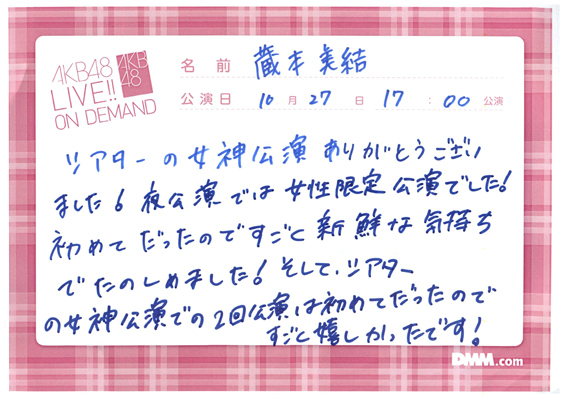 AKB48
LIVE!!
ON DEMAND
AKB
48
名前 蔵本美結
公演日 10月27日 17:00公演
シアターの女神公演ありがとうござい
ました! 夜公演では女性限定公演でした!
初めてだったのですごく新鮮な気持ち
でたのしめました! そして、シアター
の女神公演での2回公演は初めてだったので
すごく嬉しかったです!
DMM.com